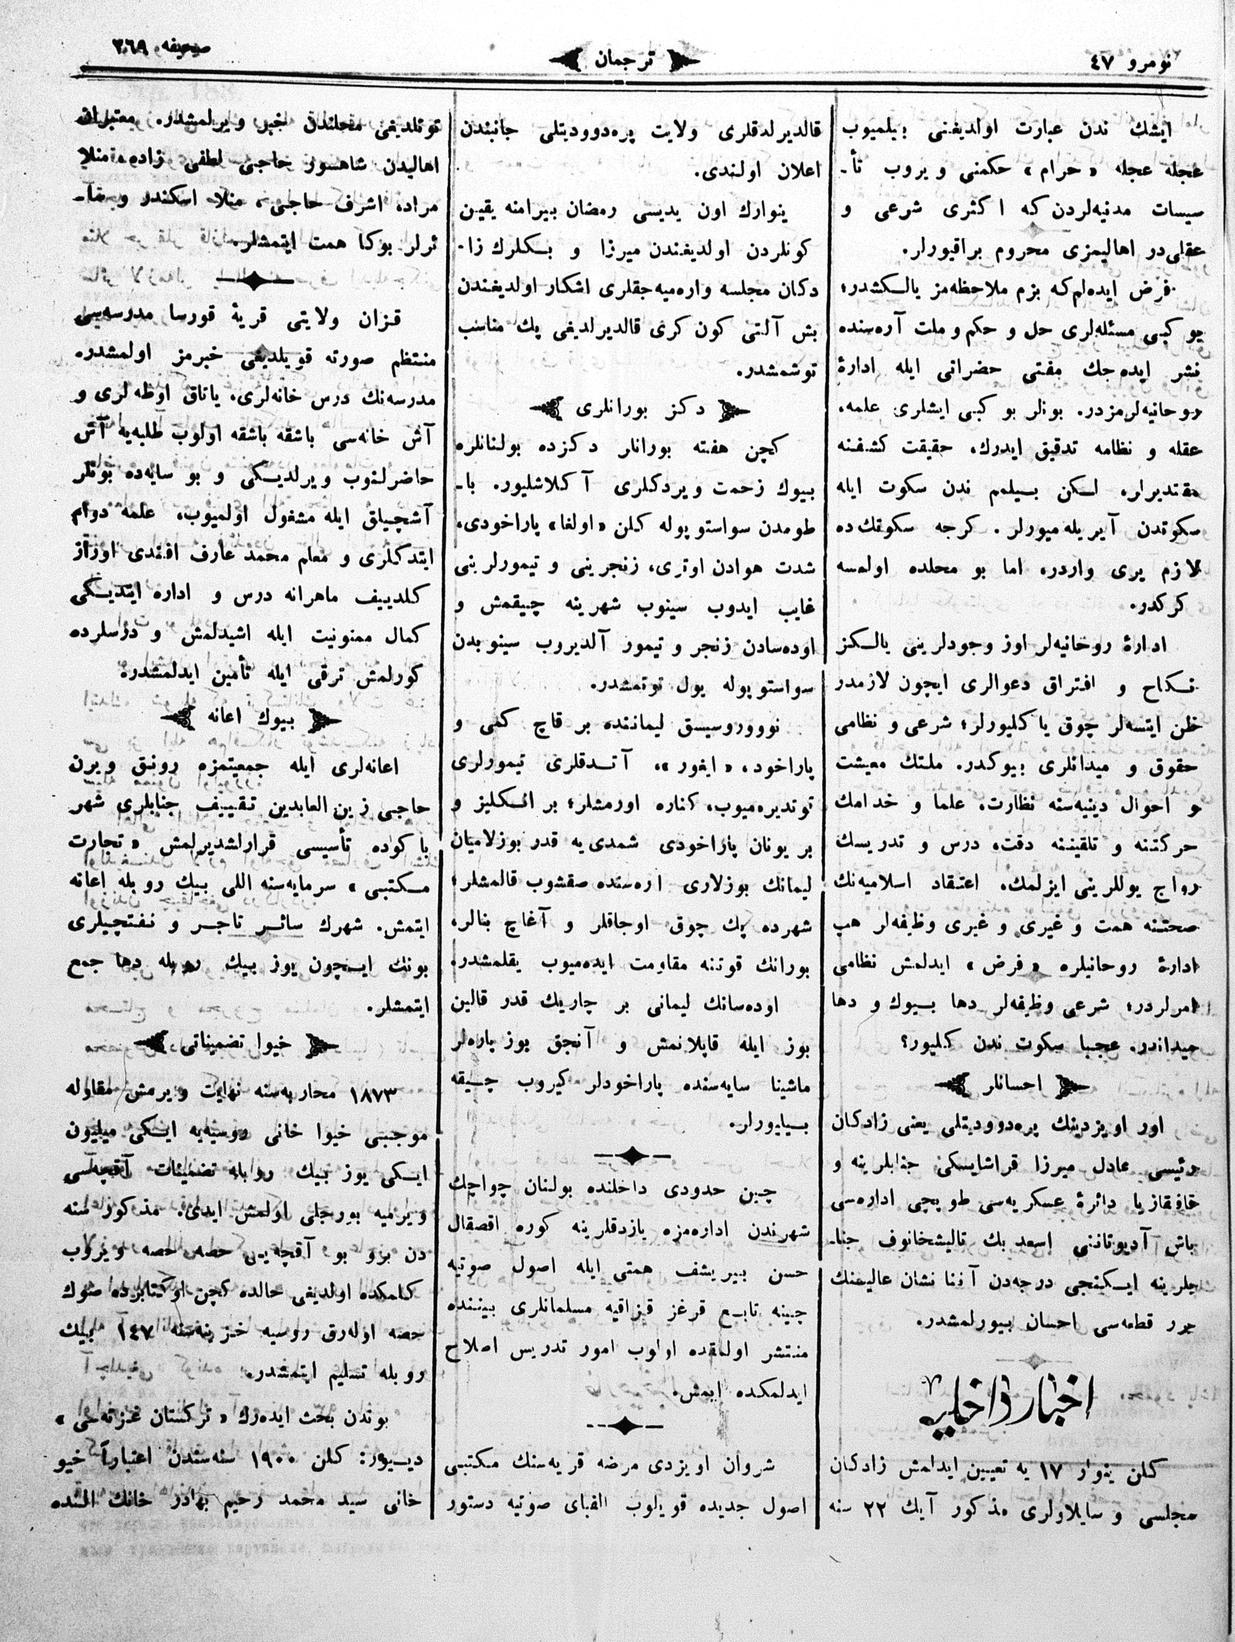 نومرو ٤٧
ترجمان
صحيفه ٣٦٩
ايشك ندن عبارت اولديغنى بيلميوب
عجله عجله «حرام» حكمنى ويروب تأ-
سيسات مدنيه‌لردن كه اكثرى شرعى و
عقلى‌در اهاليمزى محروم براقيورلر.
فرض ايده‌لم كه بزم ملاحظه‌مز يالكشدر؛
بو كبى مسئله‌لرى حل و حكم و ملت آره‌سنده
نشر ايده‌جك مفتى حضراتى ايله ادارۀ
روحانيه‌لرمزدر. بونلر بو كبى ايشلرى علمه،
عقله و نظامه تدقيق ايدرك، حقيقت كشفنه
مقتديرلر، لكن بيلمم ندن سكوت ايله
سكوتدن آيريله‌ميورلر. كرجه سكوتك‌ده
لازم يرى واردر، اما بو محلده اولمسه
كركدر.
ادارۀ روحانيه‌لر اوز وجودلرينى يالكز
نكاح و افتراق دعوالرى ايچون لازمدر
ظن ايتسه‌لر چوق ياكليورلر؛ شرعى و نظامى
حقوق و ميدانلرى بيوكدر. ملتك معيشت
و احوال دينيه‌سنه نظارت، علما و خدامك
حركتنه و تلقيننه دقت، درس و تدريسك
رواج يوللرينى ايزلمك، اعتقاد اسلاميه‌نك
صحتنه همت و غيرى و غيرى وظيفه‌لر هپ
ادارۀ روحانيلره «فرض» ايدلمش نظامى
امرلردر؛ شرعى وظيفه‌لر دها بيوك و دها
ميداندر. عجبا سكوت ندن كليور؟
احسانلر
اور اويزدينك پره‌دووديتلى يعنى زادكان
رئيسى عادل ميرزا قراشايسكى جنابلرينه و
قافقازيا دائرۀ عسكريه‌سى طوبجى اداره‌سى
باش آديوتانتى اسعد بك تاليشخانوف جنا-
بلرينه ايكنجى درجه‌دن آننا نشان عاليسنك
برر قطعه‌سى احسان بيورلمشدر.
اخبار داخليه
كلن ينوار ١٧ يه تعيين ايدلمش زادكان
مجلسى و سايلاولرى مذكور آيك ٢٢ سنه
قالديرلدقلرى ولايت پره‌دووديتلى جانبندن
اعلان اولندى.
ينوارك اون يديسى رمضان بيرامنه يقين
كونلردن اولديغندن ميرزا و بكلرك زا-
دكان مجلسه واره‌ميه‌جقلرى اشكار اولديغندن
بش آلتى كون كرى قالديرلديغى پك مناسب
توشمشدر.
دكز بورانلرى
كچن هفته بورانلر دكزده بولنانلره
بيوك زحمت ويردكلرى آكلاشليور. با-
طومدن سواستوپوله كلن «اولغا» پاراخودى،
شدت هوادن اوترى، زنجرينى و تيمورلرينى
غايب ايدوب سينوب شهرينه چيقمش و
اوده‌سادن زنجر و تيمور آلديروب سينوبدن
سواستوپوله يول توتمشدر.
نووروسيسق ليماننده بر قاچ كمى و
پاراخود، «ايغور»، آتدقلرى تيمورلرى
توتديره‌ميوب، كناره اورمشلر؛ بر انكليز و
بر يونان پاراخودى شمدى‌يه قدر بوزلاميان
ليمانك بوزلارى اره‌سنده صقشوب قالمشلر؛
شهرده پك چوق اوجاقلر و آغاچ بنالر،
بورانك قوتنه مقاومت ايده‌ميوب يقلمشدر.
اوده‌سانك ليمانى بر چاريك قدر قالين
بوز ايله قاپلانمش و آنجق بوز ياره‌لر
ماشينا سايه‌سنده پاراخودلر كيروب چيقه
بيليورلر.
چين حدودى داخلنده بولنان چواچك
شهرندن اداره‌مزه يازدقلرينه كوره اقصقال
حسن بيريشف همتى ايله اصول صوتيه
چينه تابع قرغز قزاقيه مسلمانلرى بيننده
منتشر اولمقده اولوب امور تدريس اصلاح
ايدلمكده ايمش.
شروان اويزدى مرضه قريه‌سنك مكتبى
اصول جديده قويلوب الفباى صوتيه دستور
توتلديغى محلندن خبر ويرلمشدر. معتبران
اهاليدن شاهسور حاجى لطفى زاده، منلا
مراد، اشرف حاجى، منلا اسكندر و قا-
ئرلر بوكا همت ايتمشلر.
قزان ولايتى قريۀ قورسا مدرسه‌سى
منتظم صورته قويلديغى خبرمز اولمشدر.
مدرسه‌نك درس خانه‌لرى، ياتاق اوطه‌لرى و
آش خانه‌سى باشقه باشقه اولوب طلبه‌يه آش
حاضرلنوب ويرلديكى و بو سايه‌ده بونلر
آشجيلق ايله مشغول اولميوب، علمه دوام
ايتدكلرى و معلم محمد عارف افندى اوراز
كلدييف ماهرانه درس و اداره ايتديكى
كمال ممنونيت ايله اشيدلمش و درسلرده
كورلمش ترقى ايله تأمين ايدلمشدر.
بيوك اعانه
اعانه‌لرى ايله جمعيتمزه رونق ويرن
حاجى زين العابدين تقييف جنابلرى شهر
باكوده تأسيسى قرارلشديرلمش «تجارت
مكتبى» سرمايه‌سنه اللى بيك روبله اعانه
ايتمش. شهرك سائر تاجر و نفتچيلرى
بونك ايچون يوز بيك روبله دها جمع
ايتمشلر.
خيوا تضميناتى
١٨٧٣ محاربه‌سنه نهايت ويرمش مقاوله
موجبى خيوا خانى روسيه‌يه ايكى ميليون
ايكى يوز بيك روبله تضمينات آقچه‌سى
ويرميه بورجلى اولمش ايدى. مذكور سنه
دن برو بو آقچه‌يى حصه حصه ويروب
كلمكده اولديغى حالده كچن اوكتابرده صوك
حصه اوله‌رق روسيه خزينه‌سنه ١٤٧ بيك
روبله تسليم ايتمشدر.
بوندن بحث ايده‌رك «تركستان غزته‌سى»
ديور: كلن ١٩٠٠ سنه‌سندن اعتباراً خيو
خانى سيد محمد رحيم بهادر خانك النده